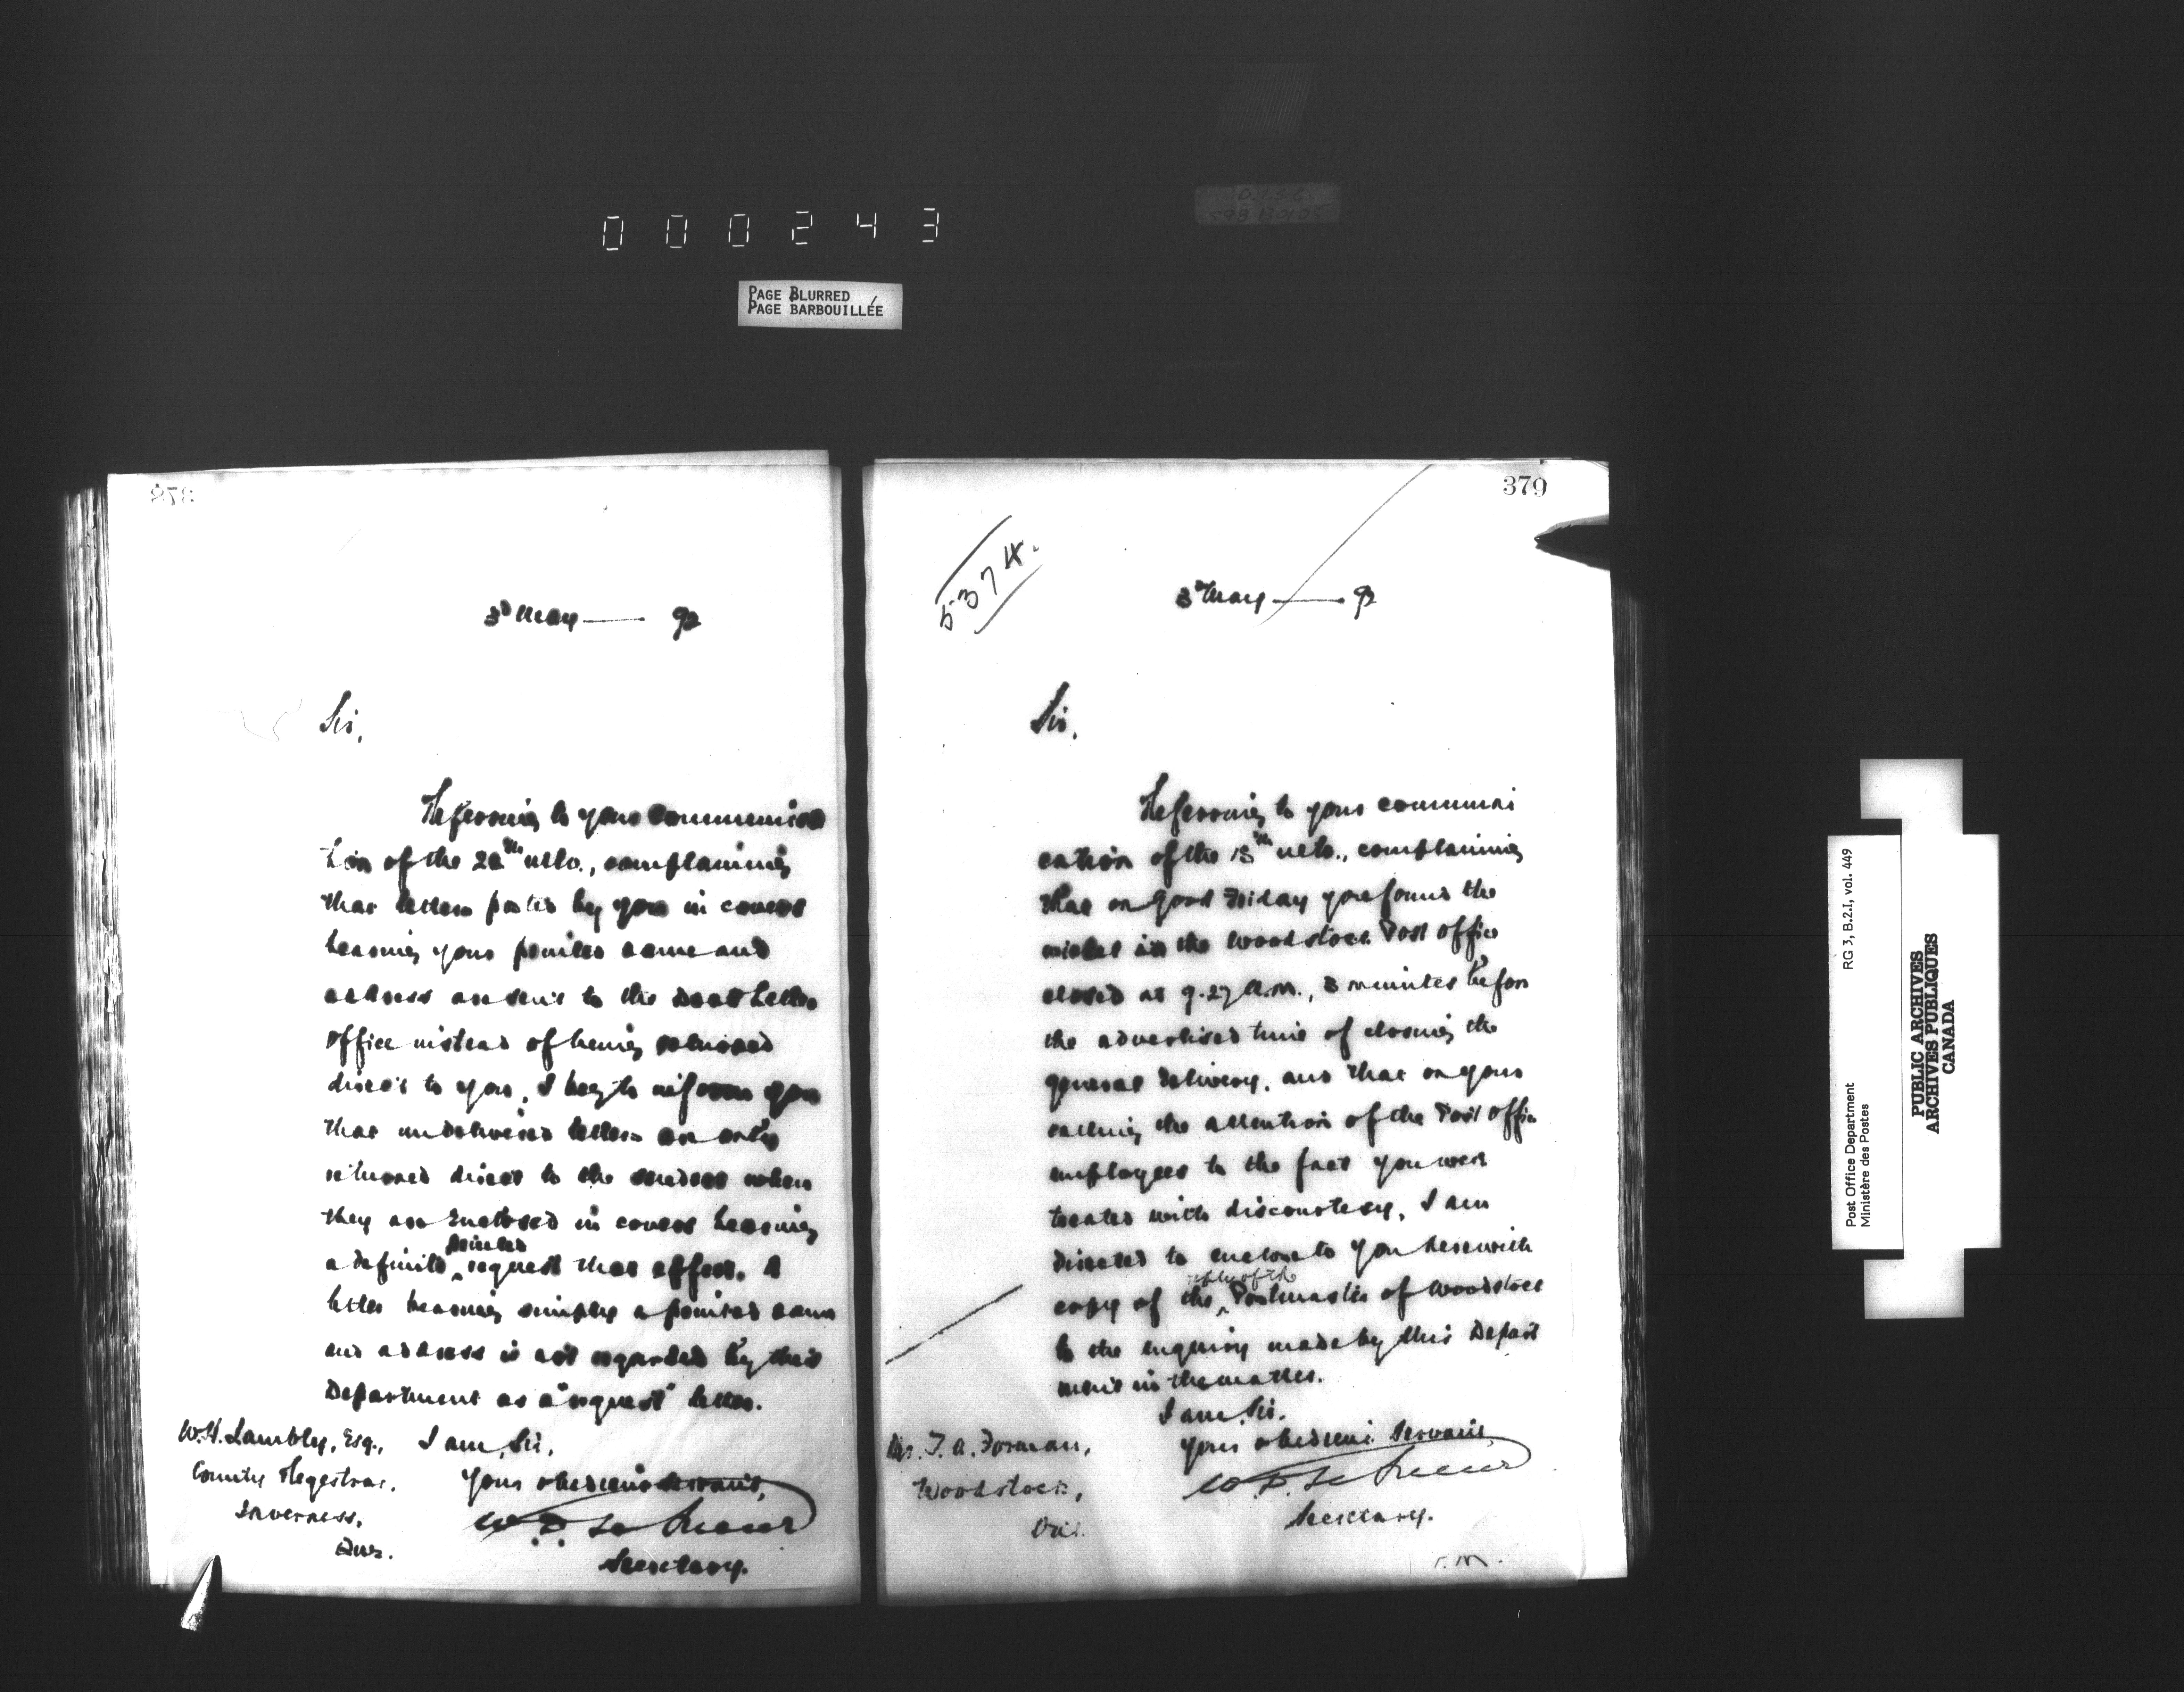 000243
PAGE BLURRED
PAGE BARBOUILLÉE
378
3d May — 92
Sir,
Referring to your communica
tion of the 28th ulto., complaining
that letters posted by you in covers
bearing your printed name and
address are sent to the Dead Letter
Office instead of being returned
direct to you, I beg to inform you
that undelivered letters are only
returned direct to the senders when
they are enclosed in covers bearing
printed
a definite ^ request that effect. A
letter bearing simply a printed name
and address is not regarded by this
Department as a "request" letter.
I am, Sir,
Your obedient servant,
W. D. Le Sueur
Secretary.
W. H. Lambly, Esq.,
County Registrar,
Inverness,
Que.
379
5374.
3d May — 92
Sir,
Referring to your communi
cation of the 18th ulto., complaining
that on Good Friday you found the
wicket in the Woodstock Post Office
closed at 9.27 A.M., 3 minutes before
the advertised time of closing the
general delivery, and that on your
calling the attention of the Post Office
employees to the fact you were
treated with discourtesy, I am
directed to enclose to you herewith
reply of the
copy of the ^ Postmaster of Woodstock
to the enquiry made by this Depart
ment in the matter.
I am, Sir,
Your obedient Servant,
W. D. Le Sueur
Secretary.
Mr. T. A. Forman,
Woodstock,
Ont.
Post Office Department
Ministère des Postes
RG 3, B.2.I, vol. 449
PUBLIC ARCHIVES
ARCHIVES PUBLIQUES
CANADA